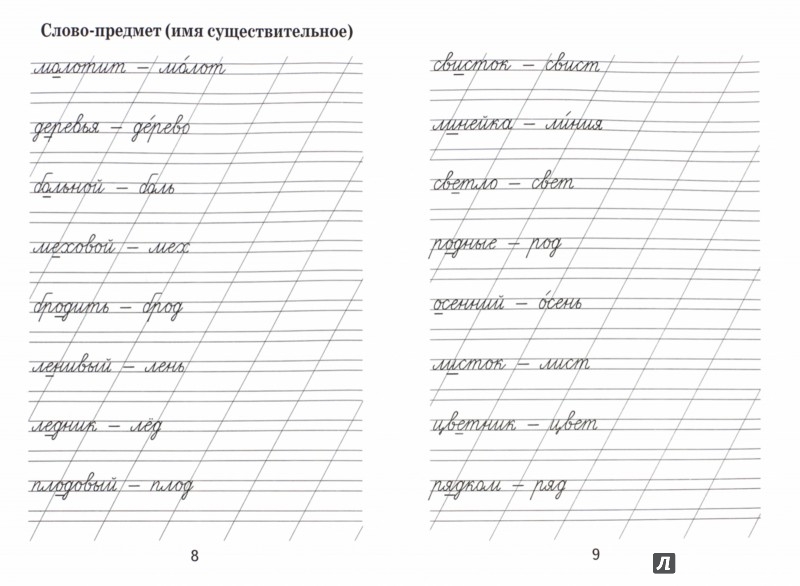 Слово-предмет (имя существительное)
молотит – мо́лот
деревья – де́рево
больной – боль
меховой – мех
бродить – брод
ленивый – лень
ледник – лёд
плодовый – плод
8
свисток – свист
линейка – ли́ния
светло – свет
родные – род
осенний – о́сень
листок – лист
цветник – цвет
рядком – ряд
9
Л